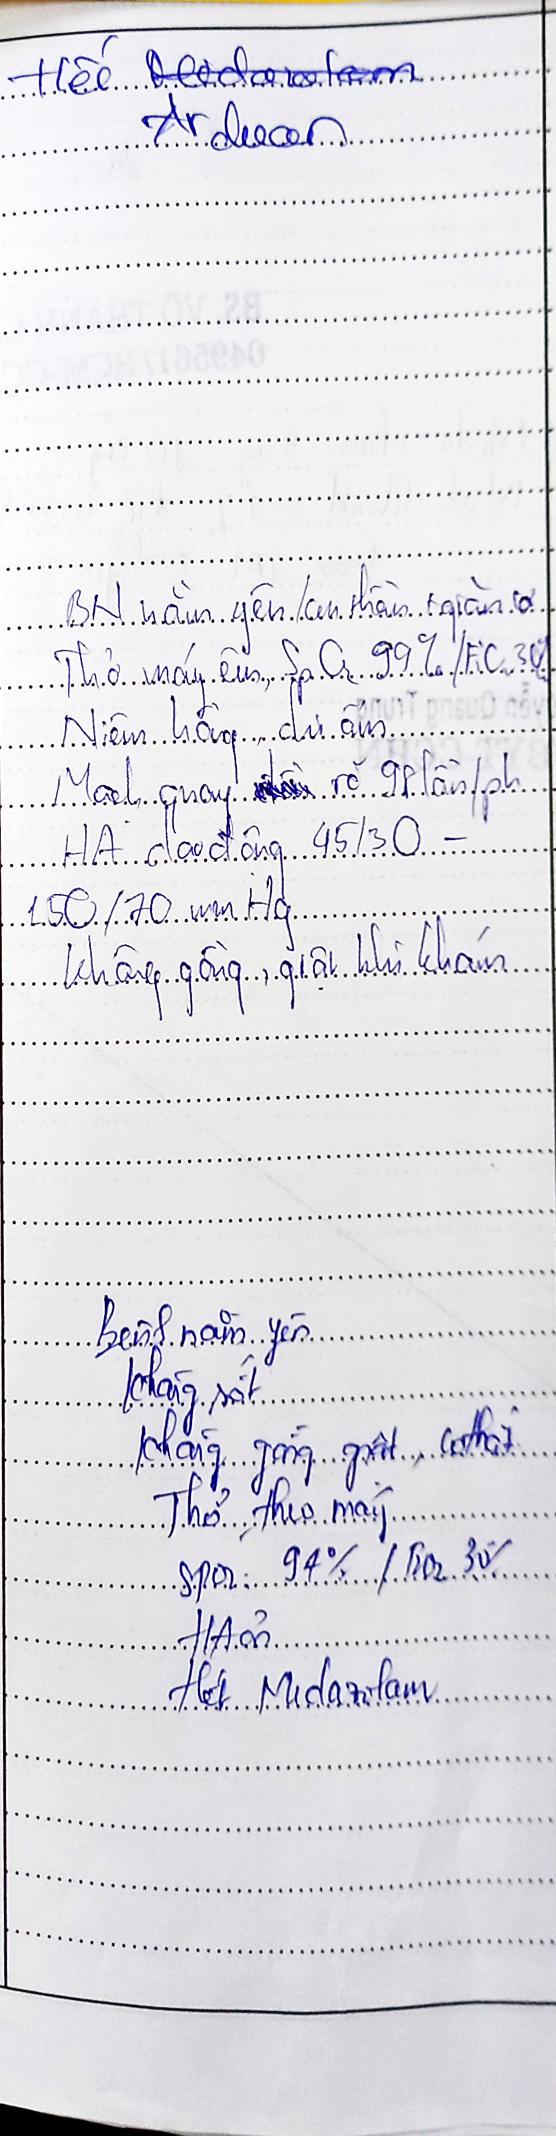 Hết
Arduan
BN nằm yên / an thần + giãn cơ
Thở máy êm, SpO2 99% / FiO2 30%
Niêm hồng, chi ấm
Mạch quay rõ 98 lần/ph
HA dao động 95/30 -
150/70 mmHg
Không gồng, giật khi khám
Bệnh nằm yên
Không sốt
Không gồng giật,
Thở theo máy
SpO2: 94% / FiO2 30%
HA ổn
Hết Midazolam